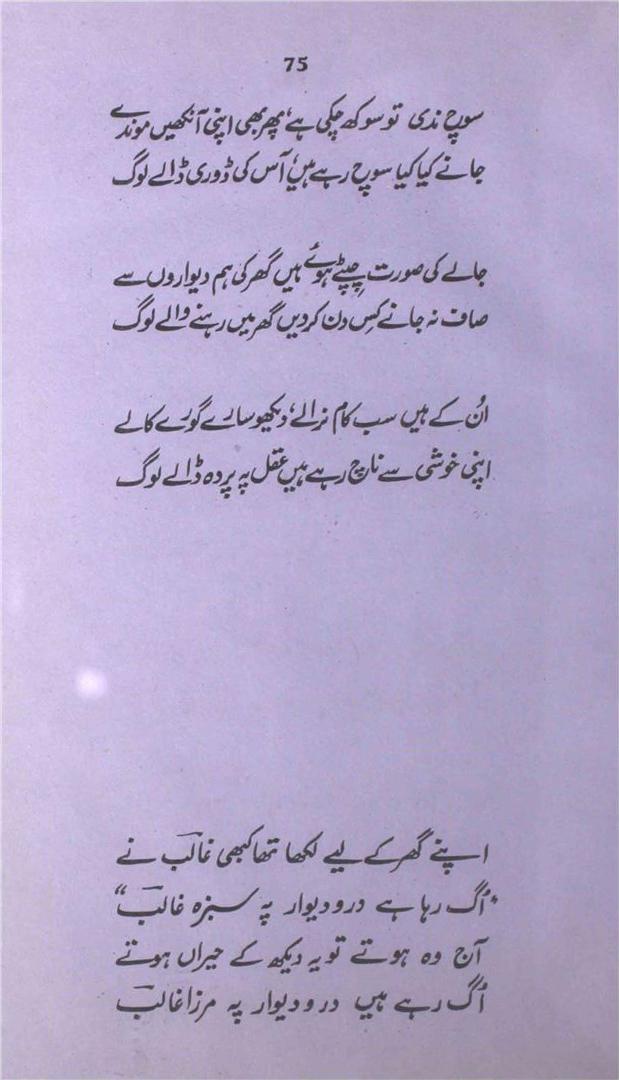 75
سوچ ندی تو سوکھ چکی ہے، پھر بھی اپنی آنکھیں موندے
جانے کیا کیا سوچ رہے ہیں، آس کی ڈوری ڈالے لوگ
جالے کی صورت چمٹے ہوئے ہیں گھر کی ہم دیواروں سے
صاف نہ جانے کِس دن کردیں گھر میں رہنے والے لوگ
اُن کے ہیں سب کام نرالے، دیکھو سارے گورے کالے
اپنی خوشی سے ناچ رہے ہیں عقل پہ پردہ ڈالے لوگ
اپنے گھر کے لیے لکھا تھا کبھی غالبؔ نے
"اُگ رہا ہے در و دیوار پہ سبزہ غالبؔ"
آج وہ ہوتے تو یہ دیکھ کے حیراں ہوتے
اُگ رہے ہیں در و دیوار پہ مرزا غالبؔ